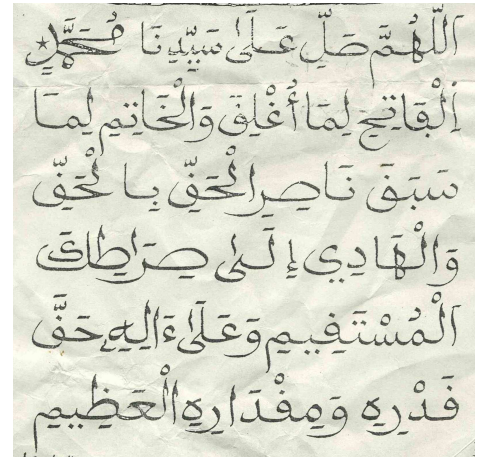 اَللَّهُمَّ صَلِّ عَلَىٰ سَيِّدِنَا مُحَمَّدٍ
اِلْڢَاتِحِ لِمَا أُغْلِڧَ وَالْخَاتِمِ لِمَا
سَبَڧَ نَاصِرِ الْحَڧِّ بِالْحَڧِّ
وَالْهَادِي إِلَىٰ صِرَاطِكَ
اَلْمُسْتَڧِيمِ وَعَلَىٰ ءَالِهِ حَڧَّ
ڧَدْرِهِ وَمِڧْدَارِهِ الْعَظِيمِ